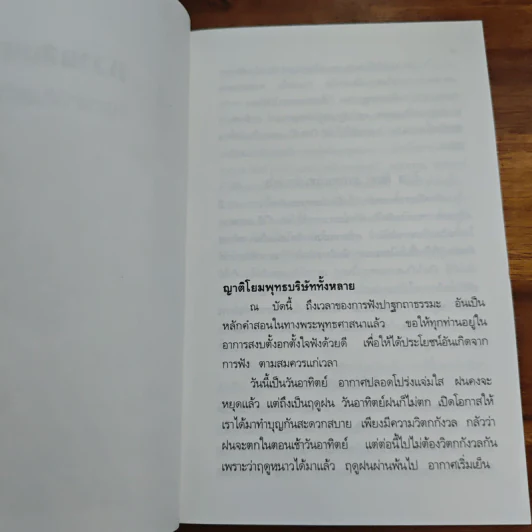 ญาติโยมพุทธบริษัททั้งหลาย
ณ บัดนี้ ถึงเวลาของการฟังปาฐกถาธรรมะ อันเป็น
หลักคำสอนในทางพระพุทธศาสนาแล้ว ขอให้ทุกท่านอยู่ใน
อาการสงบตั้งอกตั้งใจฟังด้วยดี เพื่อให้ได้ประโยชน์อันเกิดจาก
การฟัง ตามสมควรแก่เวลา
วันนี้เป็นวันอาทิตย์ อากาศปลอดโปร่งแจ่มใส ฝนคงจะ
หยุดแล้ว แต่ถึงเป็นฤดูฝน วันอาทิตย์ฝนก็ไม่ตก เปิดโอกาสให้
เราได้มาทำบุญกันสะดวกสบาย เพียงมีความวิตกกังวล กลัวว่า
ฝนจะตกในตอนเช้าวันอาทิตย์ แต่ต่อนี้ไปไม่ต้องวิตกกังวลกัน
เพราะว่าฤดูหนาวได้มาแล้ว ฤดูฝนผ่านพ้นไป อากาศเริ่มเย็น